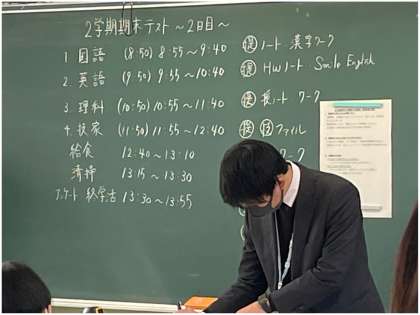 2学期期末テスト ～2日目～
1. 国語 (8:50) 8:55～9:40 提 ノート・漢字ワーク
2. 英語 (9:50) 9:55～10:40 提 HWノート Smile English
3. 理科 (10:50) 10:55～11:40 提 長ノート ワーク
4. 技家 (11:50) 11:55～12:40 提 技ファイル
給食 12:40～13:10 ワーク
清掃 13:15～13:30
アンケート 終学活 13:30～13:55